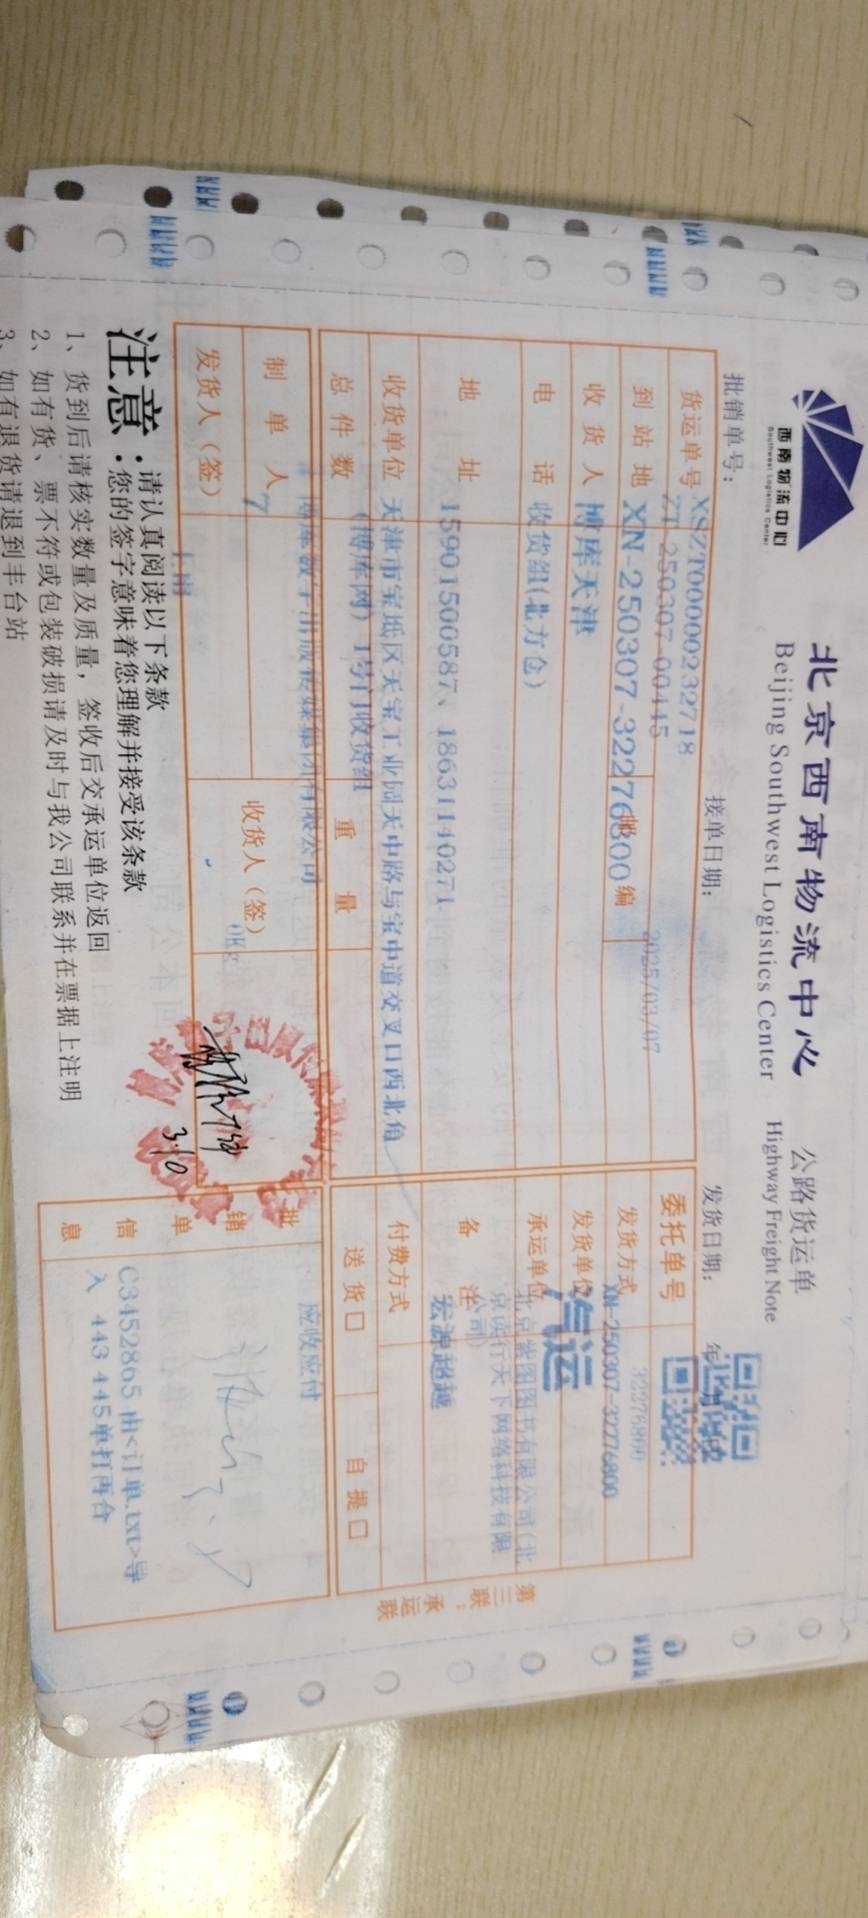 西南物流中心
Southwest Logistics Center
北京西南物流中心
公路货运单
Beijing Southwest Logistics Center
Highway Freight Note
批销单号：
接单日期：
发货日期：
年
XSZT00000232718
2025/03/07
货运单号
ZT-250307-00445
委托单号
32276800
到站地
XN-250307-32276800
编
发货方式
XN-250307-32276800
收货人
博库天津
发货单位
汽运
电话
收货组(北方仓)
承运单位
北京紫图图书有限公司(北
京读行天下网络科技有限
公司)
地址
15901500587、18631140271
备注
宏源超越
收货单位
天津市宝坻区天宝工业园天中路与宝中道交叉口西北角
付费方式
(博库网) 1号门收货组
总件数
重量
送货□
自提□
博库数字出版传媒集团有限公司
应收应付
制单人
7
收货人（签）
0Kg
发货人（签）
3.10
批销单信息
C3452865 由<订单.txt>导
入 443 445单打再合
第三联：承运联
注意：
请认真阅读以下条款
您的签字意味着您理解并接受该条款
1、货到后请核实数量及质量，签收后交承运单位返回
2、如有货、票不符或包装破损请及时与我公司联系并在票据上注明
3、如有退货请退到丰台站